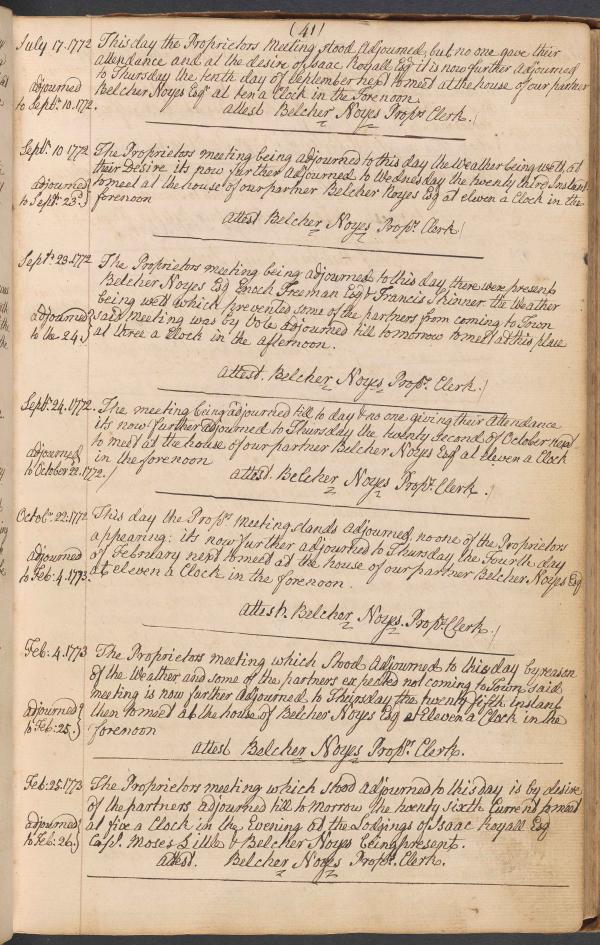 (41)
July 17. 1772 This day the Proprietors Meeting stood adjourned, but no one gave their
attendance and at the desire of Isaac Royall Esqr it is now further adjourned
to Thursday the tenth day of September next to meet at the house of our partner
adjourned Belcher Noyes Esqr at ten a Clock in the Forenoon
to Septr. 10. 1772.
attest Belcher Noyes Proprs Clerk.
Septr. 10 1772 The Proprietors meeting being adjourned to this day the Weather being wett, at
their Desire its now further adjourned to Wednesday the twenty third Instant
adjourned to meet at the house of our partner Belcher Noyes Esq at eleven a Clock in the
to Septr. 23d. forenoon
attest Belcher Noyes Propr. Clerk
Septr. 23. 1772 The Proprietors meeting being adjourned to this day, there were present
Belcher Noyes Esq Enoch Freeman Esq & Francis Skinner. the Weather
being wett which prevented some of the partners from coming to Town
adjourned said meeting was by Vote adjourned till tomorrow to meet at this place
to the 24. at three a Clock in the afternoon.
attest. Belcher Noyes Propr. Clerk.
Septr. 24. 1772. The meeting being adjourned till to day & no one giving their attendance
its now further adjourned to Thursday the twenty second of October next
to meet at the house of our partner Belcher Noyes Esqr at eleven a Clock
adjourned in the forenoon
to October 22. 1772.
attest. Belcher Noyes Propr. Clerk.
Octobr. 22. 1772 This day the Proprs. Meeting stands adjourned, no one of the Proprietors
appearing: its now further adjourned to Thursday the Fourth day
adjourned of February next to meet at the house of our partner Belcher Noyes Esq
to Feb: 4. 1773. at eleven a Clock in the forenoon.
attest. Belcher Noyes. Propr. Clerk.
Feb: 4. 1773 The Proprietors meeting which stood adjourned to this day by reason
of the Weather and some of the partners expected not coming to Town, said
meeting is now further adjourned to Thursday the twenty fifth instant
adjourned then to meet at the house of Belcher Noyes Esq at Eleven a Clock in the
to Feb: 25. forenoon
attest Belcher Noyes Propr. Clerk.
Feb: 25. 1773 The Proprietors meeting which stood adjourned to this day is by desire
of the partners adjourned till to morrow the twenty sixth Currant to meet
adjourned at Five a Clock in the Evening at the Lodgings of Isaac Royall Esq
to Feb: 26. Capt. Moses Little & Belcher Noyes being present.
attest. Belcher Noyes Propr. Clerk.